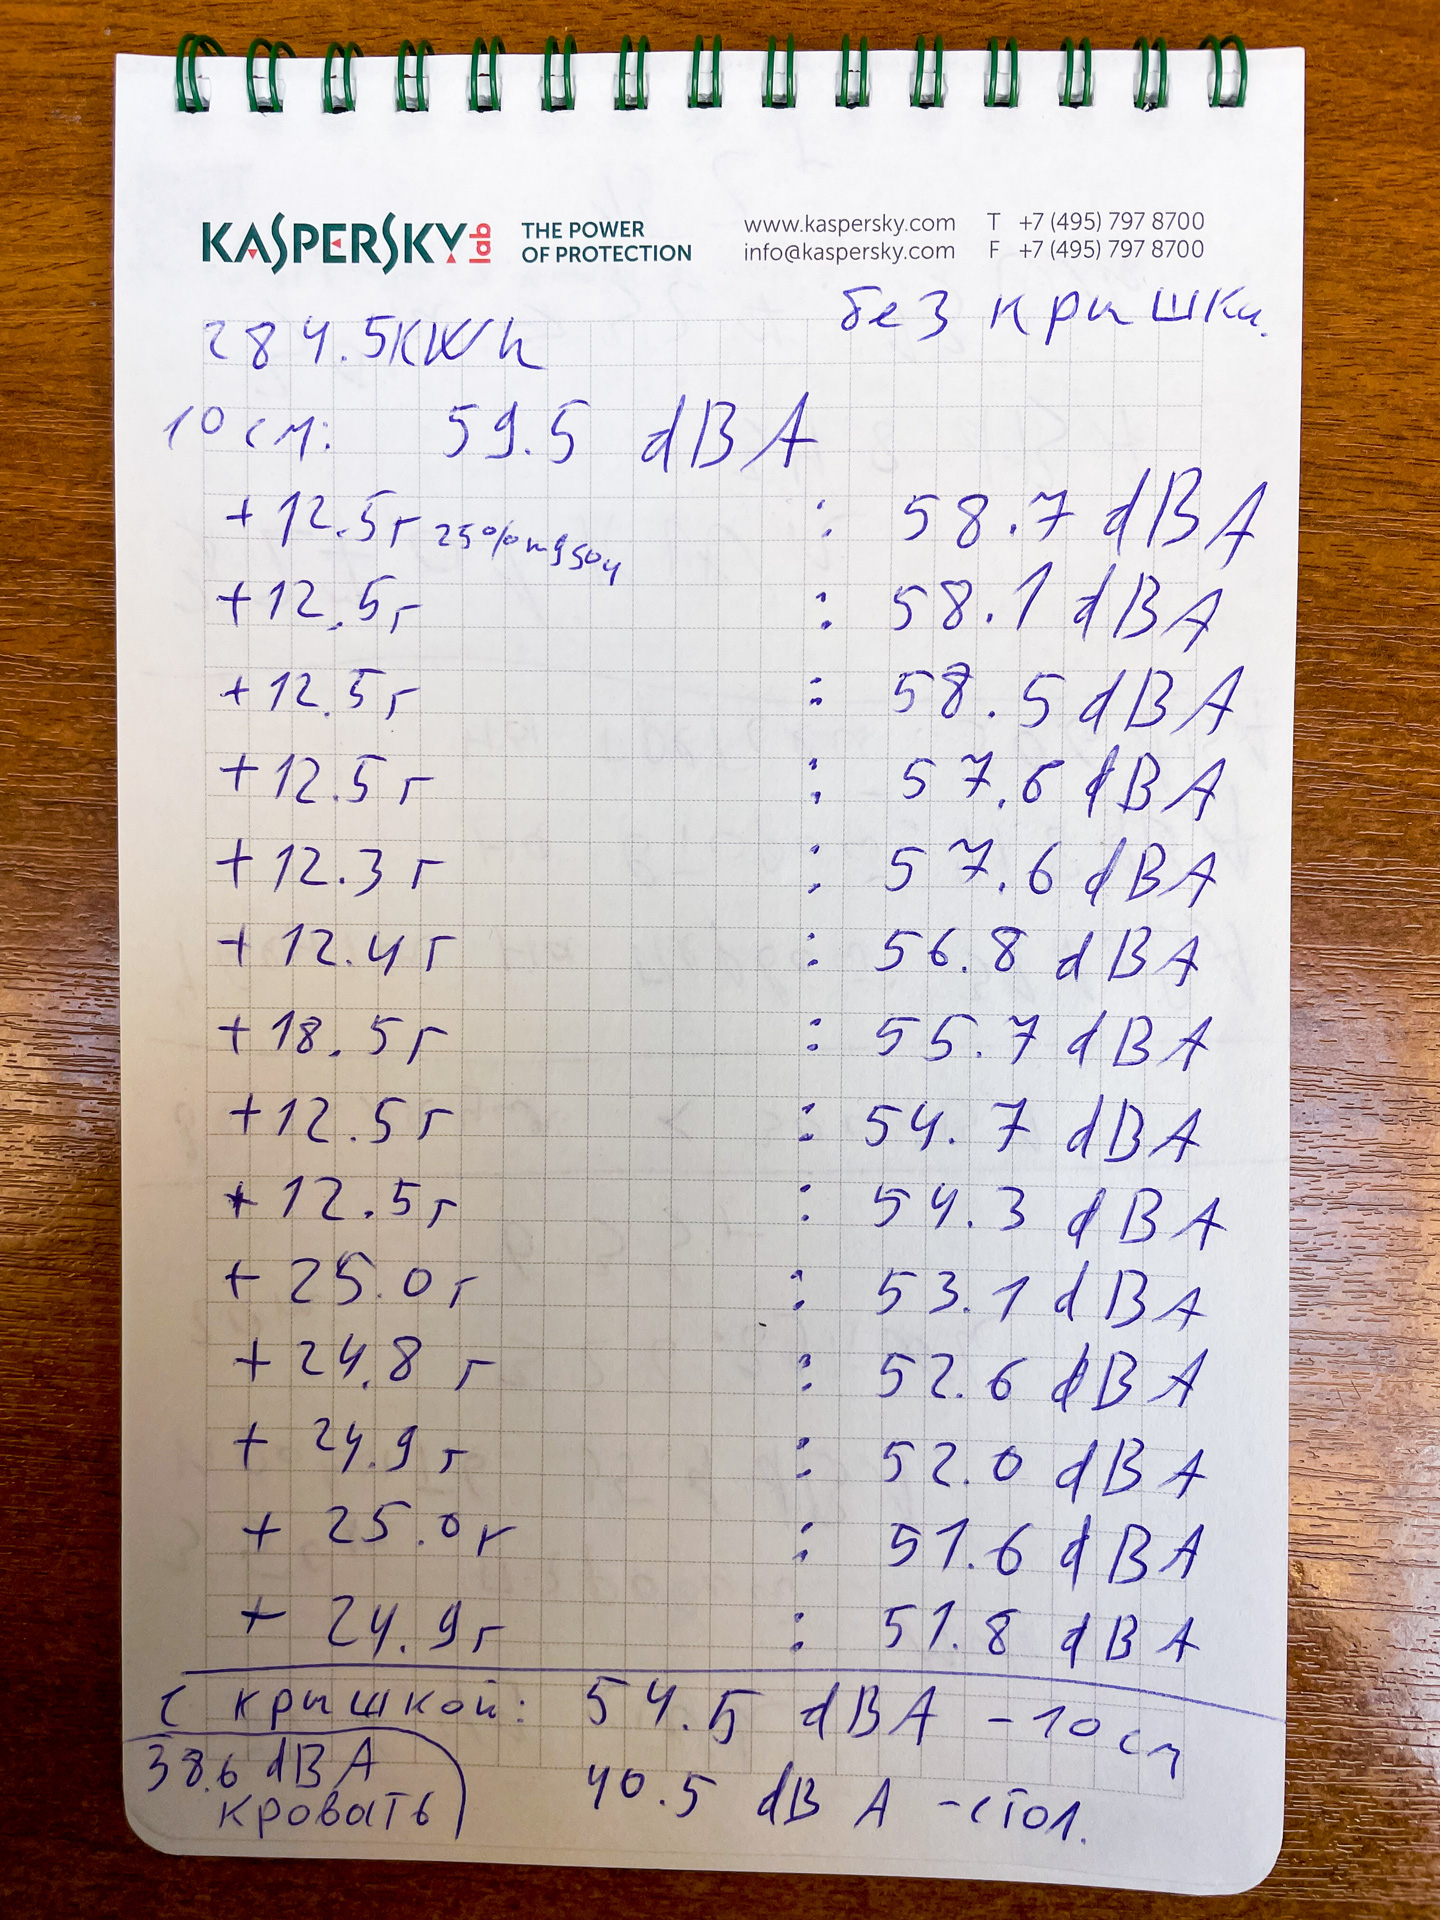 KASPERSKY lab THE POWER OF PROTECTION
www.kaspersky.com T +7 (495) 797 8700
info@kaspersky.com F +7 (495) 797 8700
без крышки.
284.5KWh
10 см: 59.5 dBA
+12.5г 25% mgso4 : 58.7 dBA
+12.5г : 58.1 dBA
+12.5г : 58.5 dBA
+12.5г : 57.6 dBA
+12.3г : 57.6 dBA
+12.4г : 56.8 dBA
+18.5г : 55.7 dBA
+12.5г : 54.7 dBA
+12.5г : 54.3 dBA
+25.0г : 53.1 dBA
+24.8г : 52.6 dBA
+24.9г : 52.0 dBA
+25.0г : 51.6 dBA
+24.9г : 51.8 dBA
с крышкой: 54.5 dBA -10см
38.6 dBA
кровать
40.5 dBA -стол.